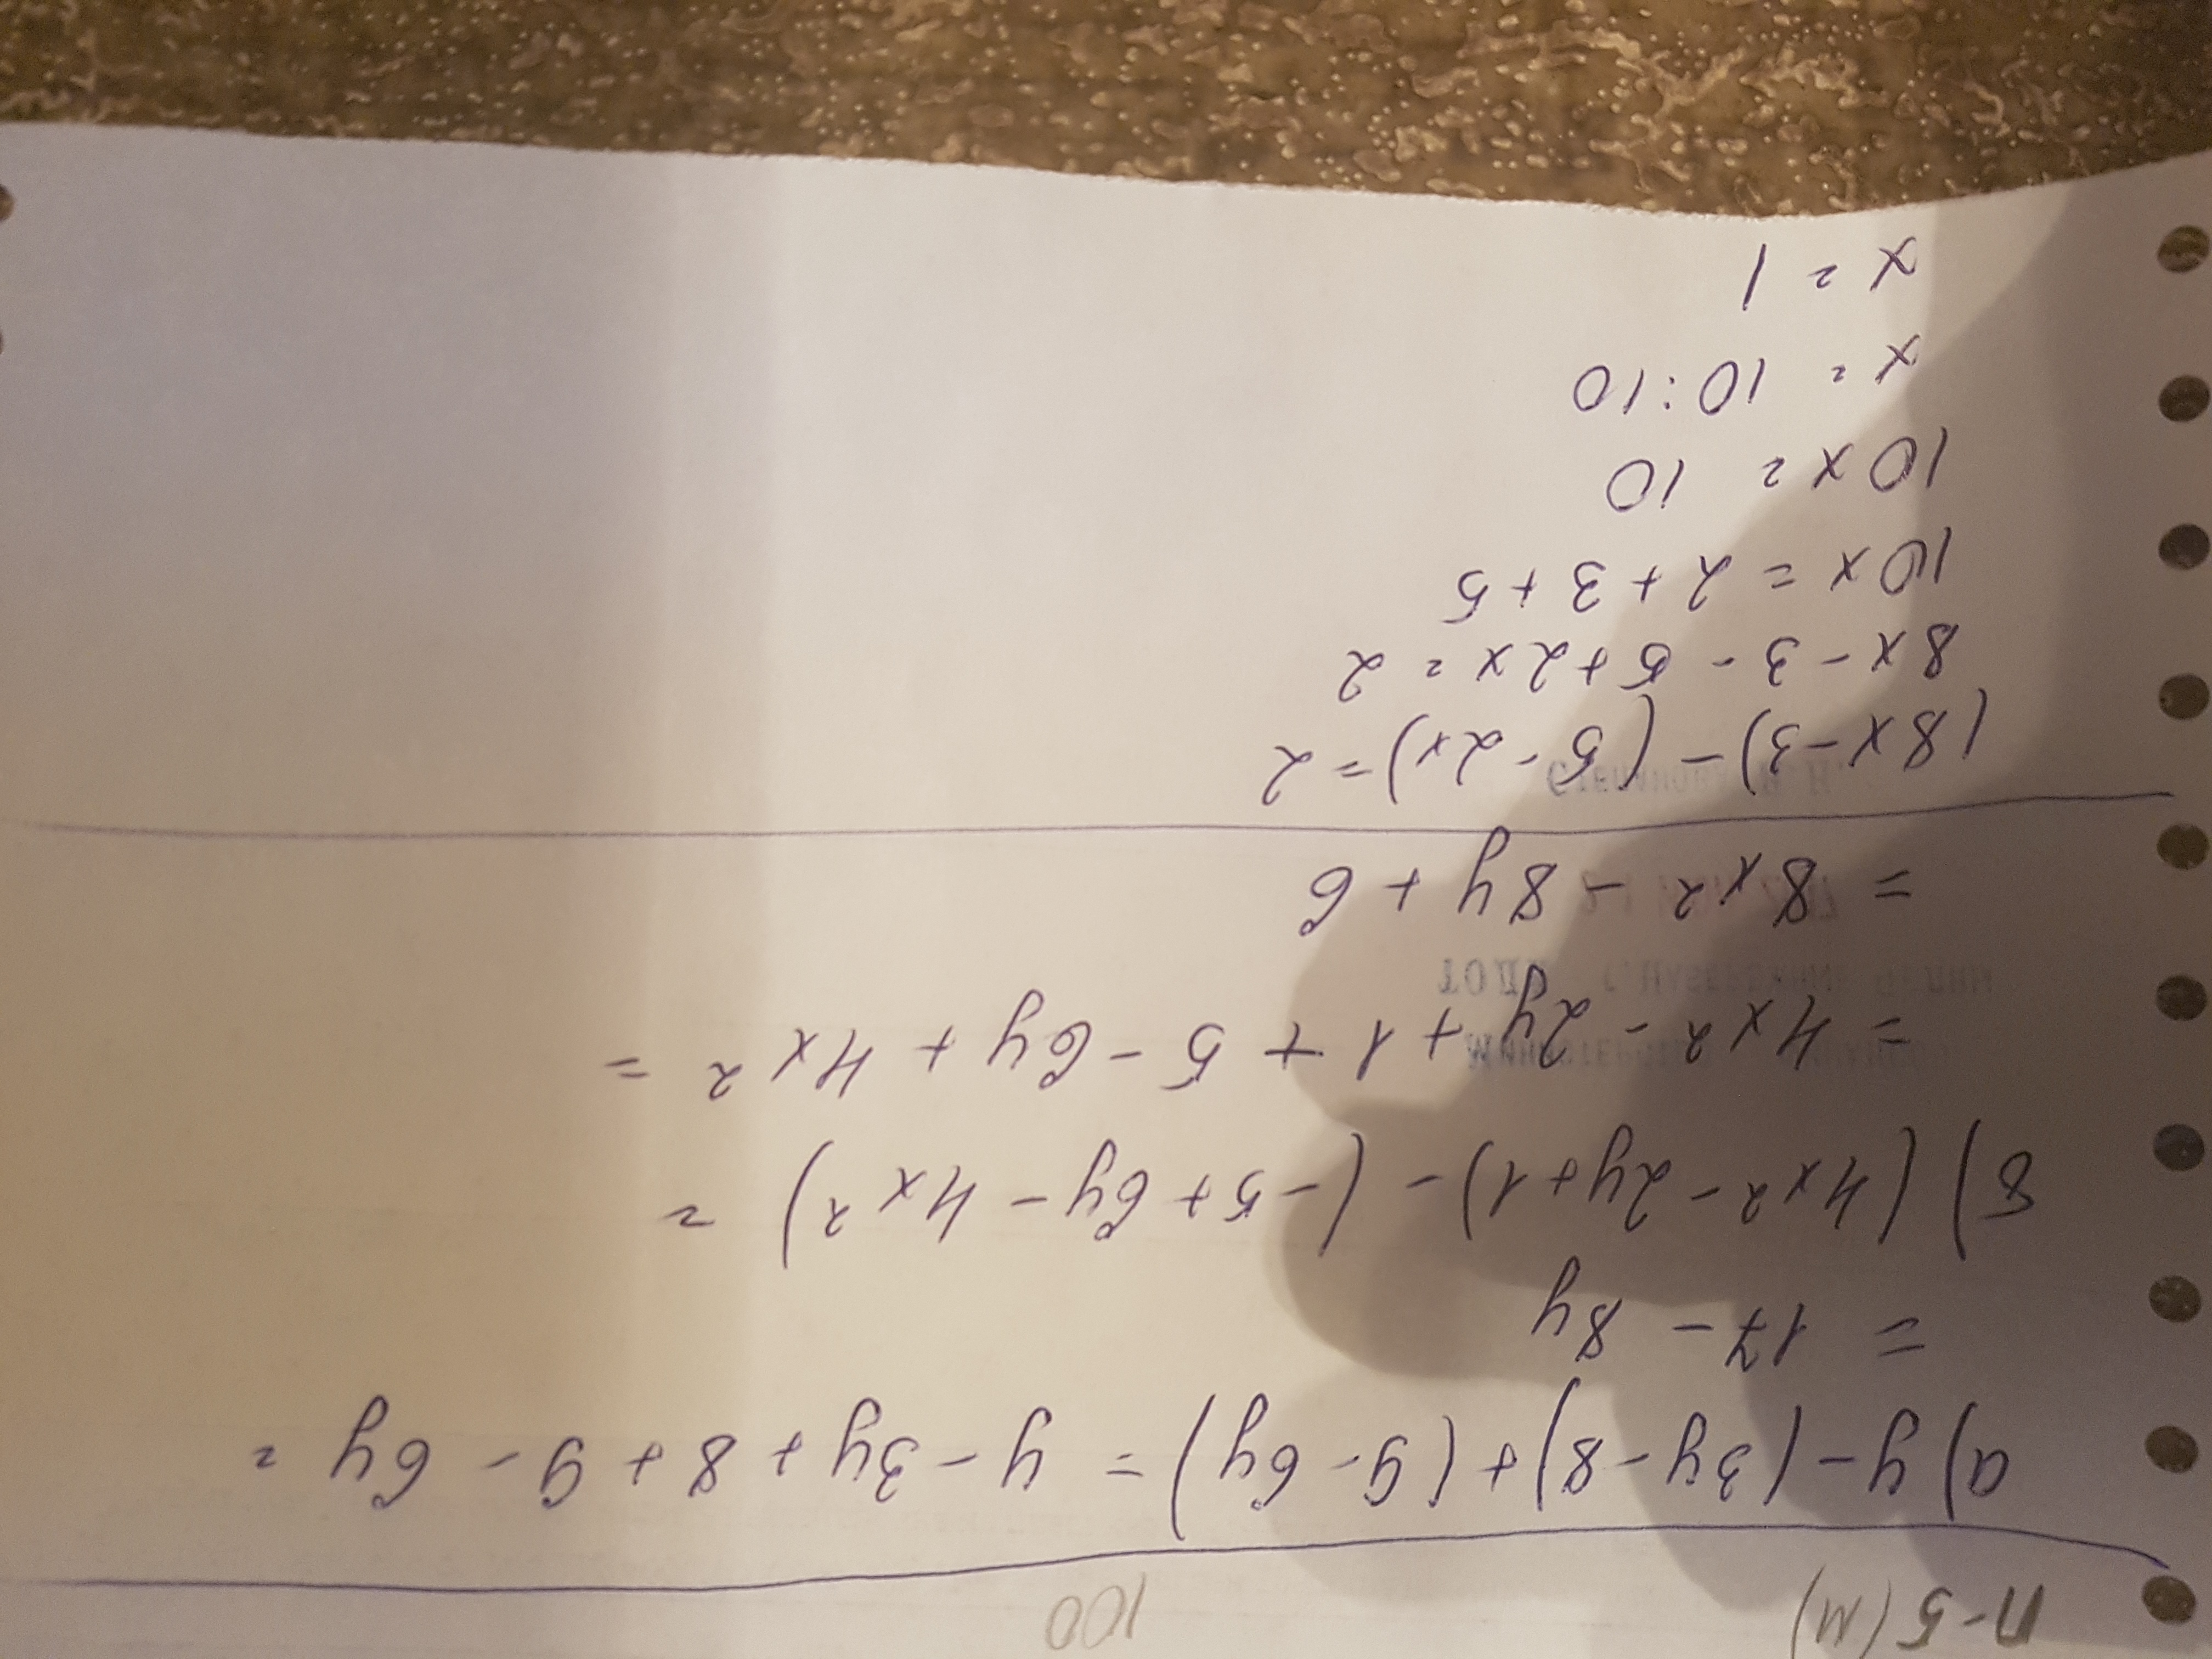 п-5(м) 100
а) y-(3y-8)+(9-6y)= y-3y+8+9-6y=
= 17-8y
в) (4x2-2y+1)-(-5+6y-4x2)=
= 4x2-2y+1+5-6y+4x2=
= 8x2-8y+6
(8x-3)-(5-2x)=2
8x-3-5+2x=2
10x=2+3+5
10x=10
x=10:10
x=1